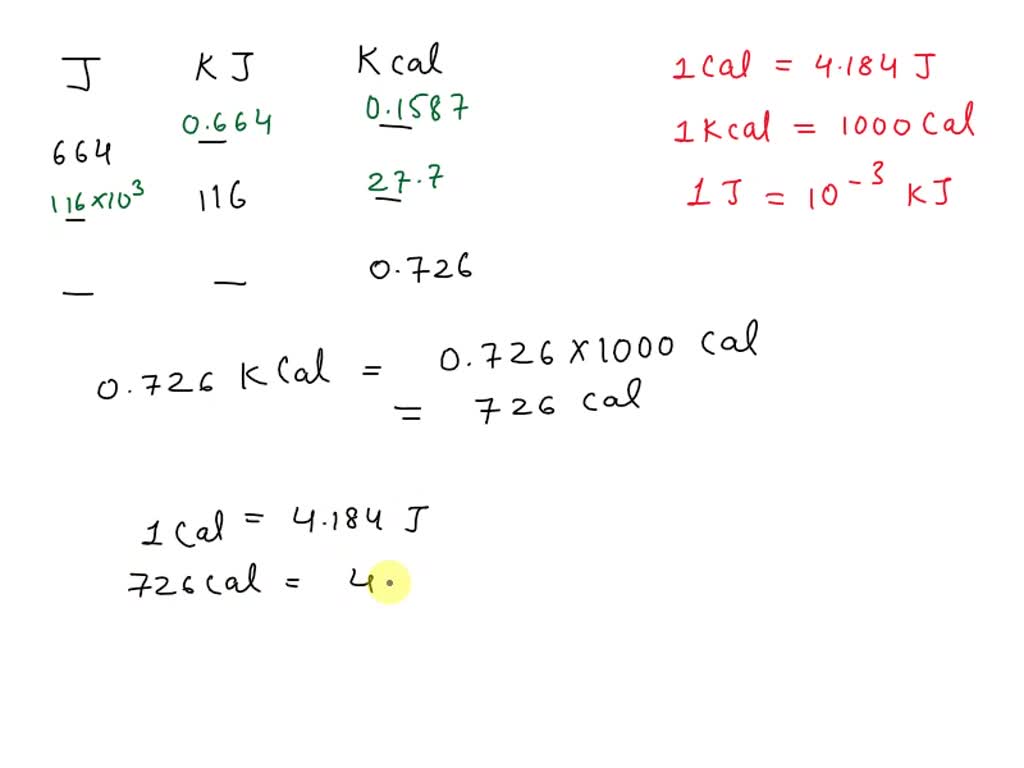 J KJ Kcal
664 0.664 0.1587
116×10³ 116 27.7
— — 0.726
1 Cal = 4.184 J
1 Kcal = 1000 Cal
1 J = 10⁻³ KJ
0.726 KCal = 0.726×1000 Cal
= 726 cal
1 Cal = 4.184 J
726 Cal = 4.